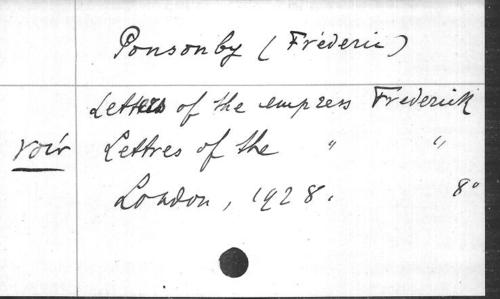 Ponsonby (Fréderic)
Letters of the empress Frederick
voir Lettres of the " "
London, 1928. 8°